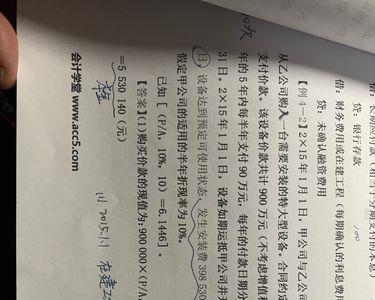 借：长期应付款（相当于分期支付的本息）
贷：银行存款
借：财务费用或在建工程（每期确认的利息费用
贷：未确认融资费用
【例4-2】2×15年1月1日，甲公司与乙公司
从乙公司购入一台需要安装的特大型设备。合同约定
支付价款。该设备价款共计900万元（不考虑增值
年的5年内每半年支付90万元，每年的付款日期分
31日。2×15年1月1日，设备如期运抵甲公司并
日，设备达到预定可使用状态，发生安装费398 530
假定甲公司的适用的半年折现率为10%。
已知［（P/A，10%，10）=6.1446］。
【答案】(1)购买价款的现值为：900 000×（P/A，
=5 530 140（元）
会计学堂 www.acc5.com
100
10次
2015.1.1 在建